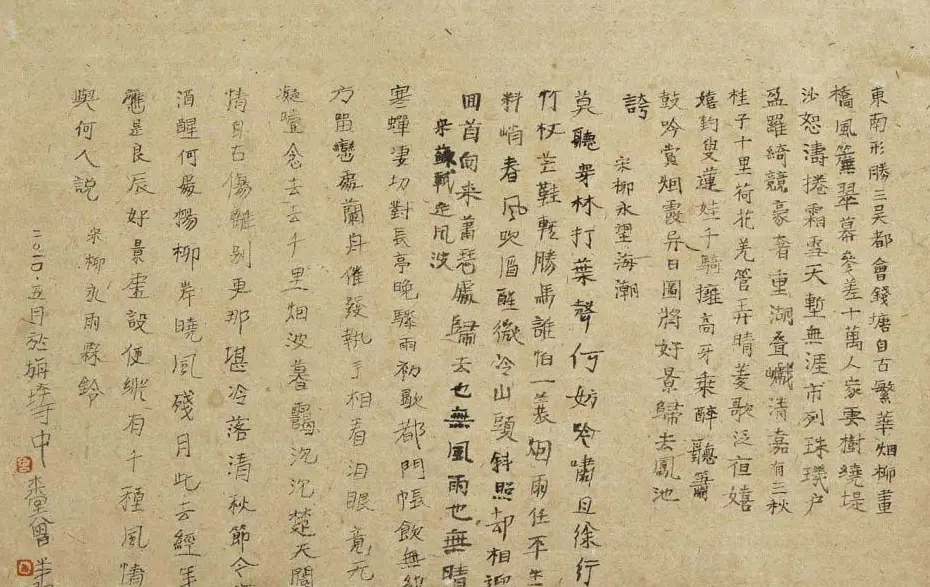 東南形勝三吳都會錢塘自古繁華烟柳畫
橋風簾翠幕參差十萬人家雲樹繞堤
沙恕濤捲霜雪天塹無涯市列珠璣户
盈羅綺競豪奢重湖叠巘清嘉有三秋
桂子十里荷花羌管弄晴菱歌泛夜嬉
嬉釣叟蓮娃千騎擁高牙乘醉聽簫
鼓吟賞烟霞异日圖將好景歸去鳳池
誇
宋柳永望海潮
莫聽穿林打葉聲何妨吟嘯且徐行
竹杖芒鞋輕勝馬誰怕一蓑烟雨任平生
料峭春風吹酒醒微冷山頭斜照却相迎
回首向来蕭瑟處歸去也無風雨也無晴
宋蘇軾定風波
寒蟬凄切對長亭晚驟雨初歇都門帳飲無緒
方留戀處蘭舟催發執手相看泪眼竟无
凝噎念去去千里烟波暮靄沉沉楚天闊
情自古傷離别更那堪冷落清秋節今
酒醒何處楊柳岸曉風殘月此去經年
應是良辰好景虚設便縱有千種風情
與何人説
宋柳永雨霖鈴
二〇二〇.五月於 中
曾